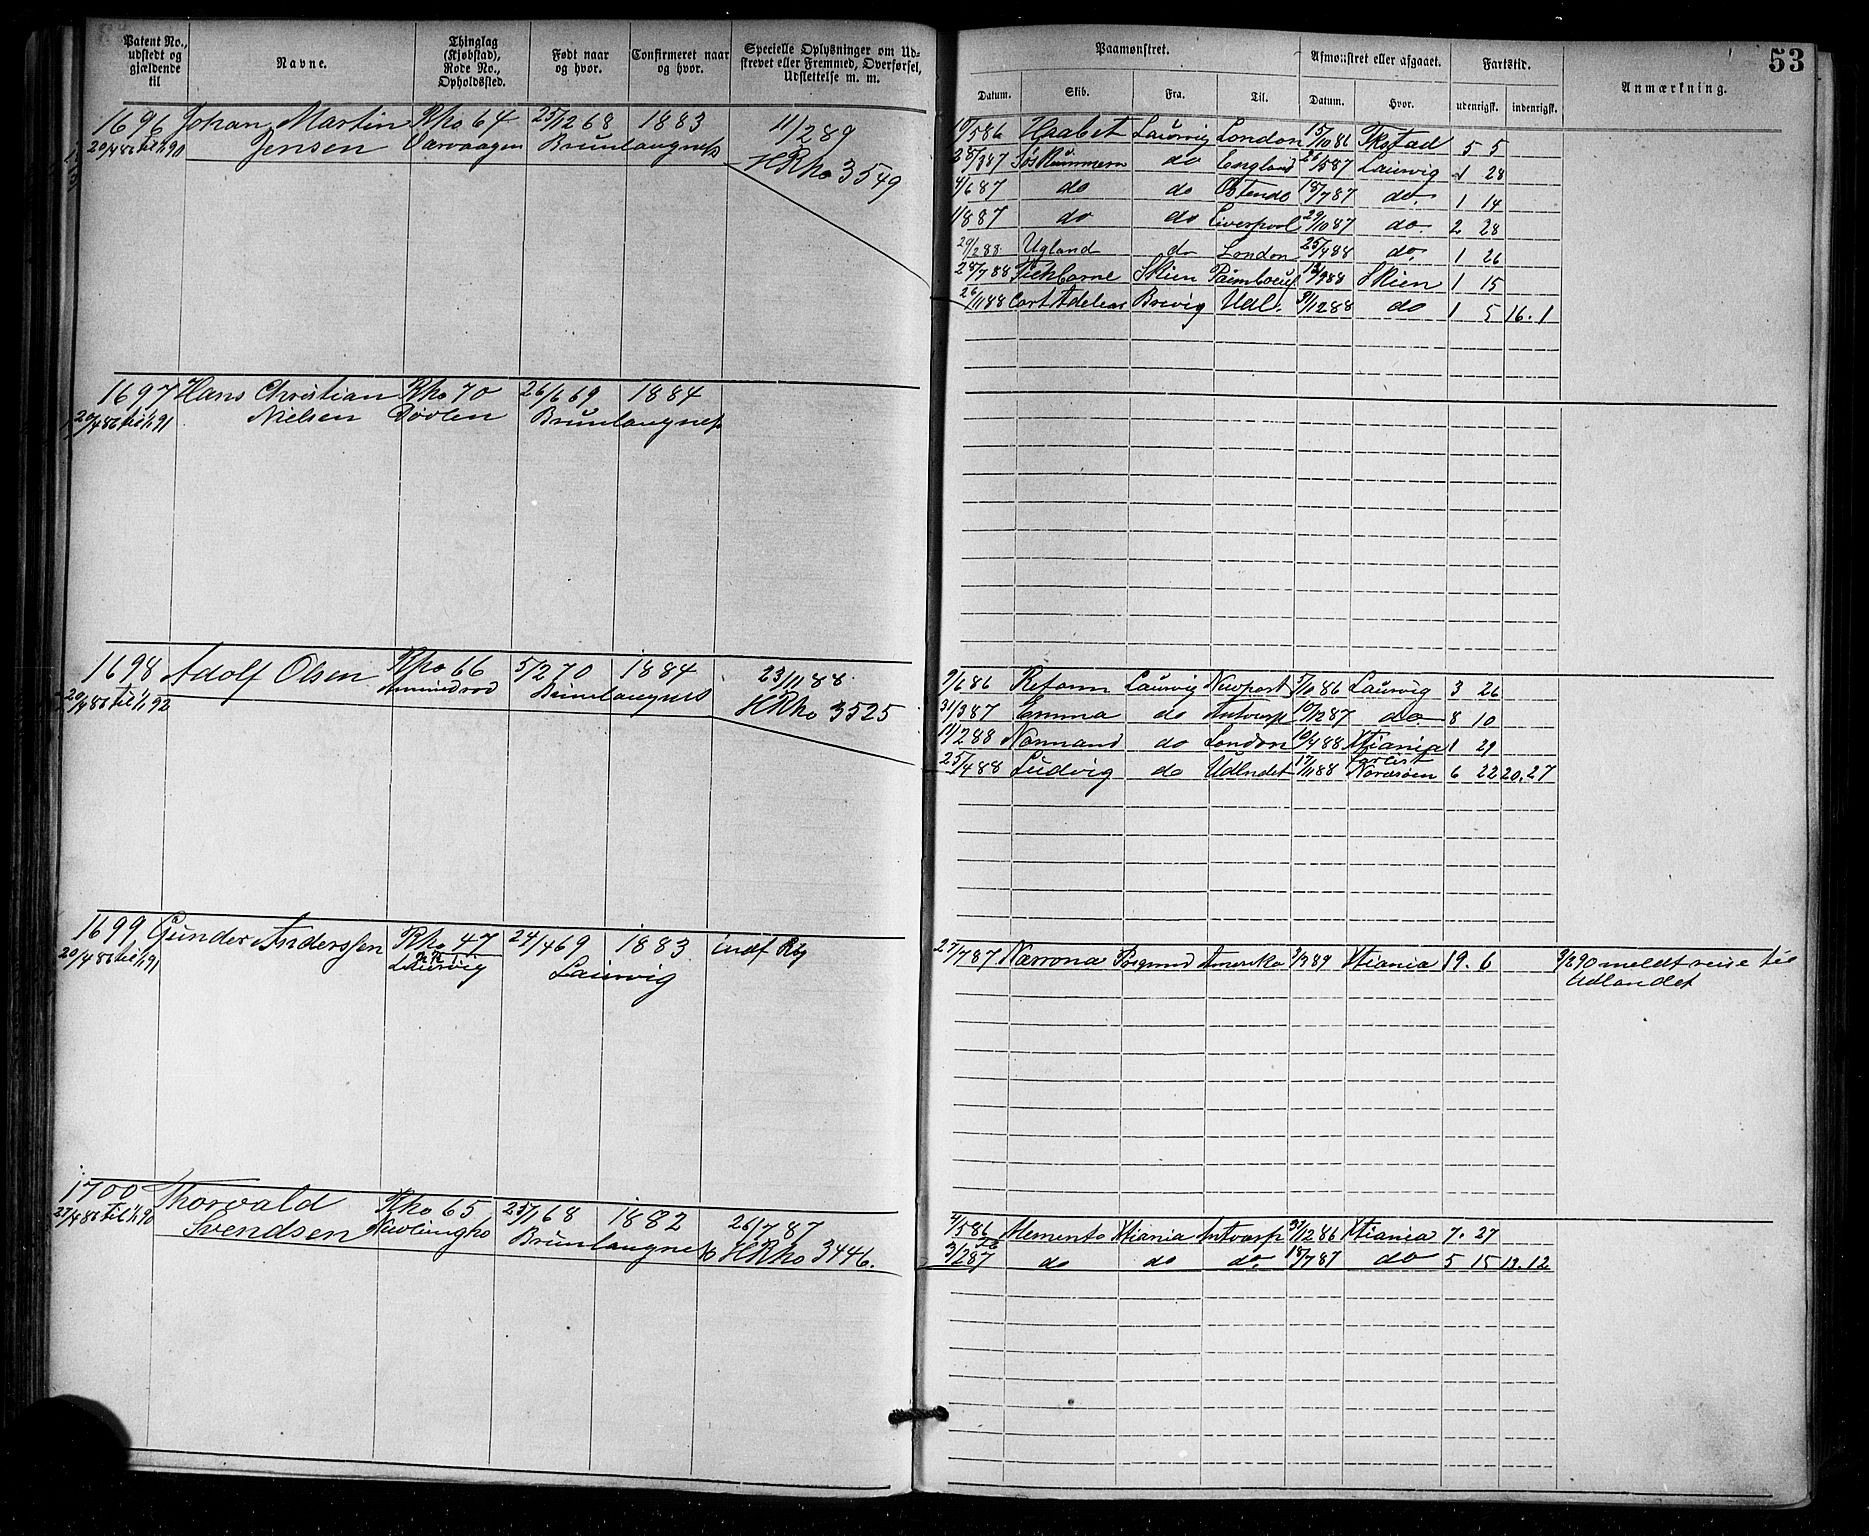 Patent No., udstedt og gjældende til
Navne.
Thinglag (Kjøbstad), Rode No., Opholdssted.
Født naar og hvor.
Confirmeret naar og hvor.
Specielle Oplysninger om Udstrevet eller Fremmed, Overførsel, Udslettelse m. m.
1696 Johan Martin Rho 64 25/12 68 1883 11/2 89
20/4 86 til 1/1 90 Jensen Varvaagen Brunlangnæs HRho 3549
1697 Hans Christian Rho 70 26/6 69 1884
20/4 86 til 1/1 91 Nielsen Brunlangnæs
1698 Adolf Olsen Rho 66 5/2 70 1884 23/11 88
20/4 86 til 1/1 92 Brunlangnæs HRho 3525
1699 Gunder Anderssen Rho 47 24/4 69 1883 indf
20/4 86 til 1/1 91 Laurvig Laurvig
1700 Thorvald Rho 65 25/1 68 1882 26/7 87
27/4 86 til 1/1 90 Svendsen Brunlangnæs HRho 3446.
53
Paamønstret.
Afmønstret eller afgaaet.
Fartstid.
Anmærkning.
Datum. Skib. Fra. Til. Datum. Hvor. udenrigsk. indenrigsk.
10/5 86 Haabet Laurvig London 15/10 86 5 5
25/3 87 do England 23/5 87 Laurvig 1 28
4/6 87 do do Ostende 18/7 87 do. 1 14
1/8 87 do do Liverpool 29/10 87 do 2 28
29/2 88 Ugland do London 25/4 88 do. 1 26
28/7 88 Skien 12/9 88 Skien 1 15
26/11 88 Cort Adeler Brevig Udl. 31/12 88 do 1 5 16. 1
9/6 86 Reform Laurvig Newport 5/10 86 Laurvig 3 26
31/3 87 Emma do Antverp 10/12 87 do. 8 10
11/2 88 Normand do London 10/4 88 Xtiania 1 29
25/4 88 Ludvig do Udlndet 17/11 88 forlist Nordsøen 6 22 20. 27
27/7 87 Norrona Porsgrund Amerika 3/3 89 Xtiania 19. 6 9/8 90 meldt reise til
Udlandet
4/5 86 Memento Xtiania Antverp 31/12 86 Xtiania 7. 27
3/2 87 do do do. 18/7 87 do 5 15 13. 12